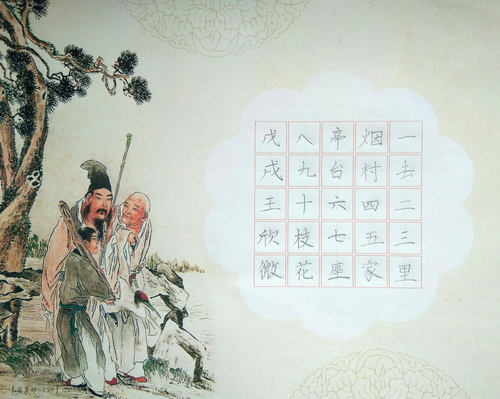 一去二三里
烟村四五家
亭台六七座
八九十枝花
戊戌王欣微